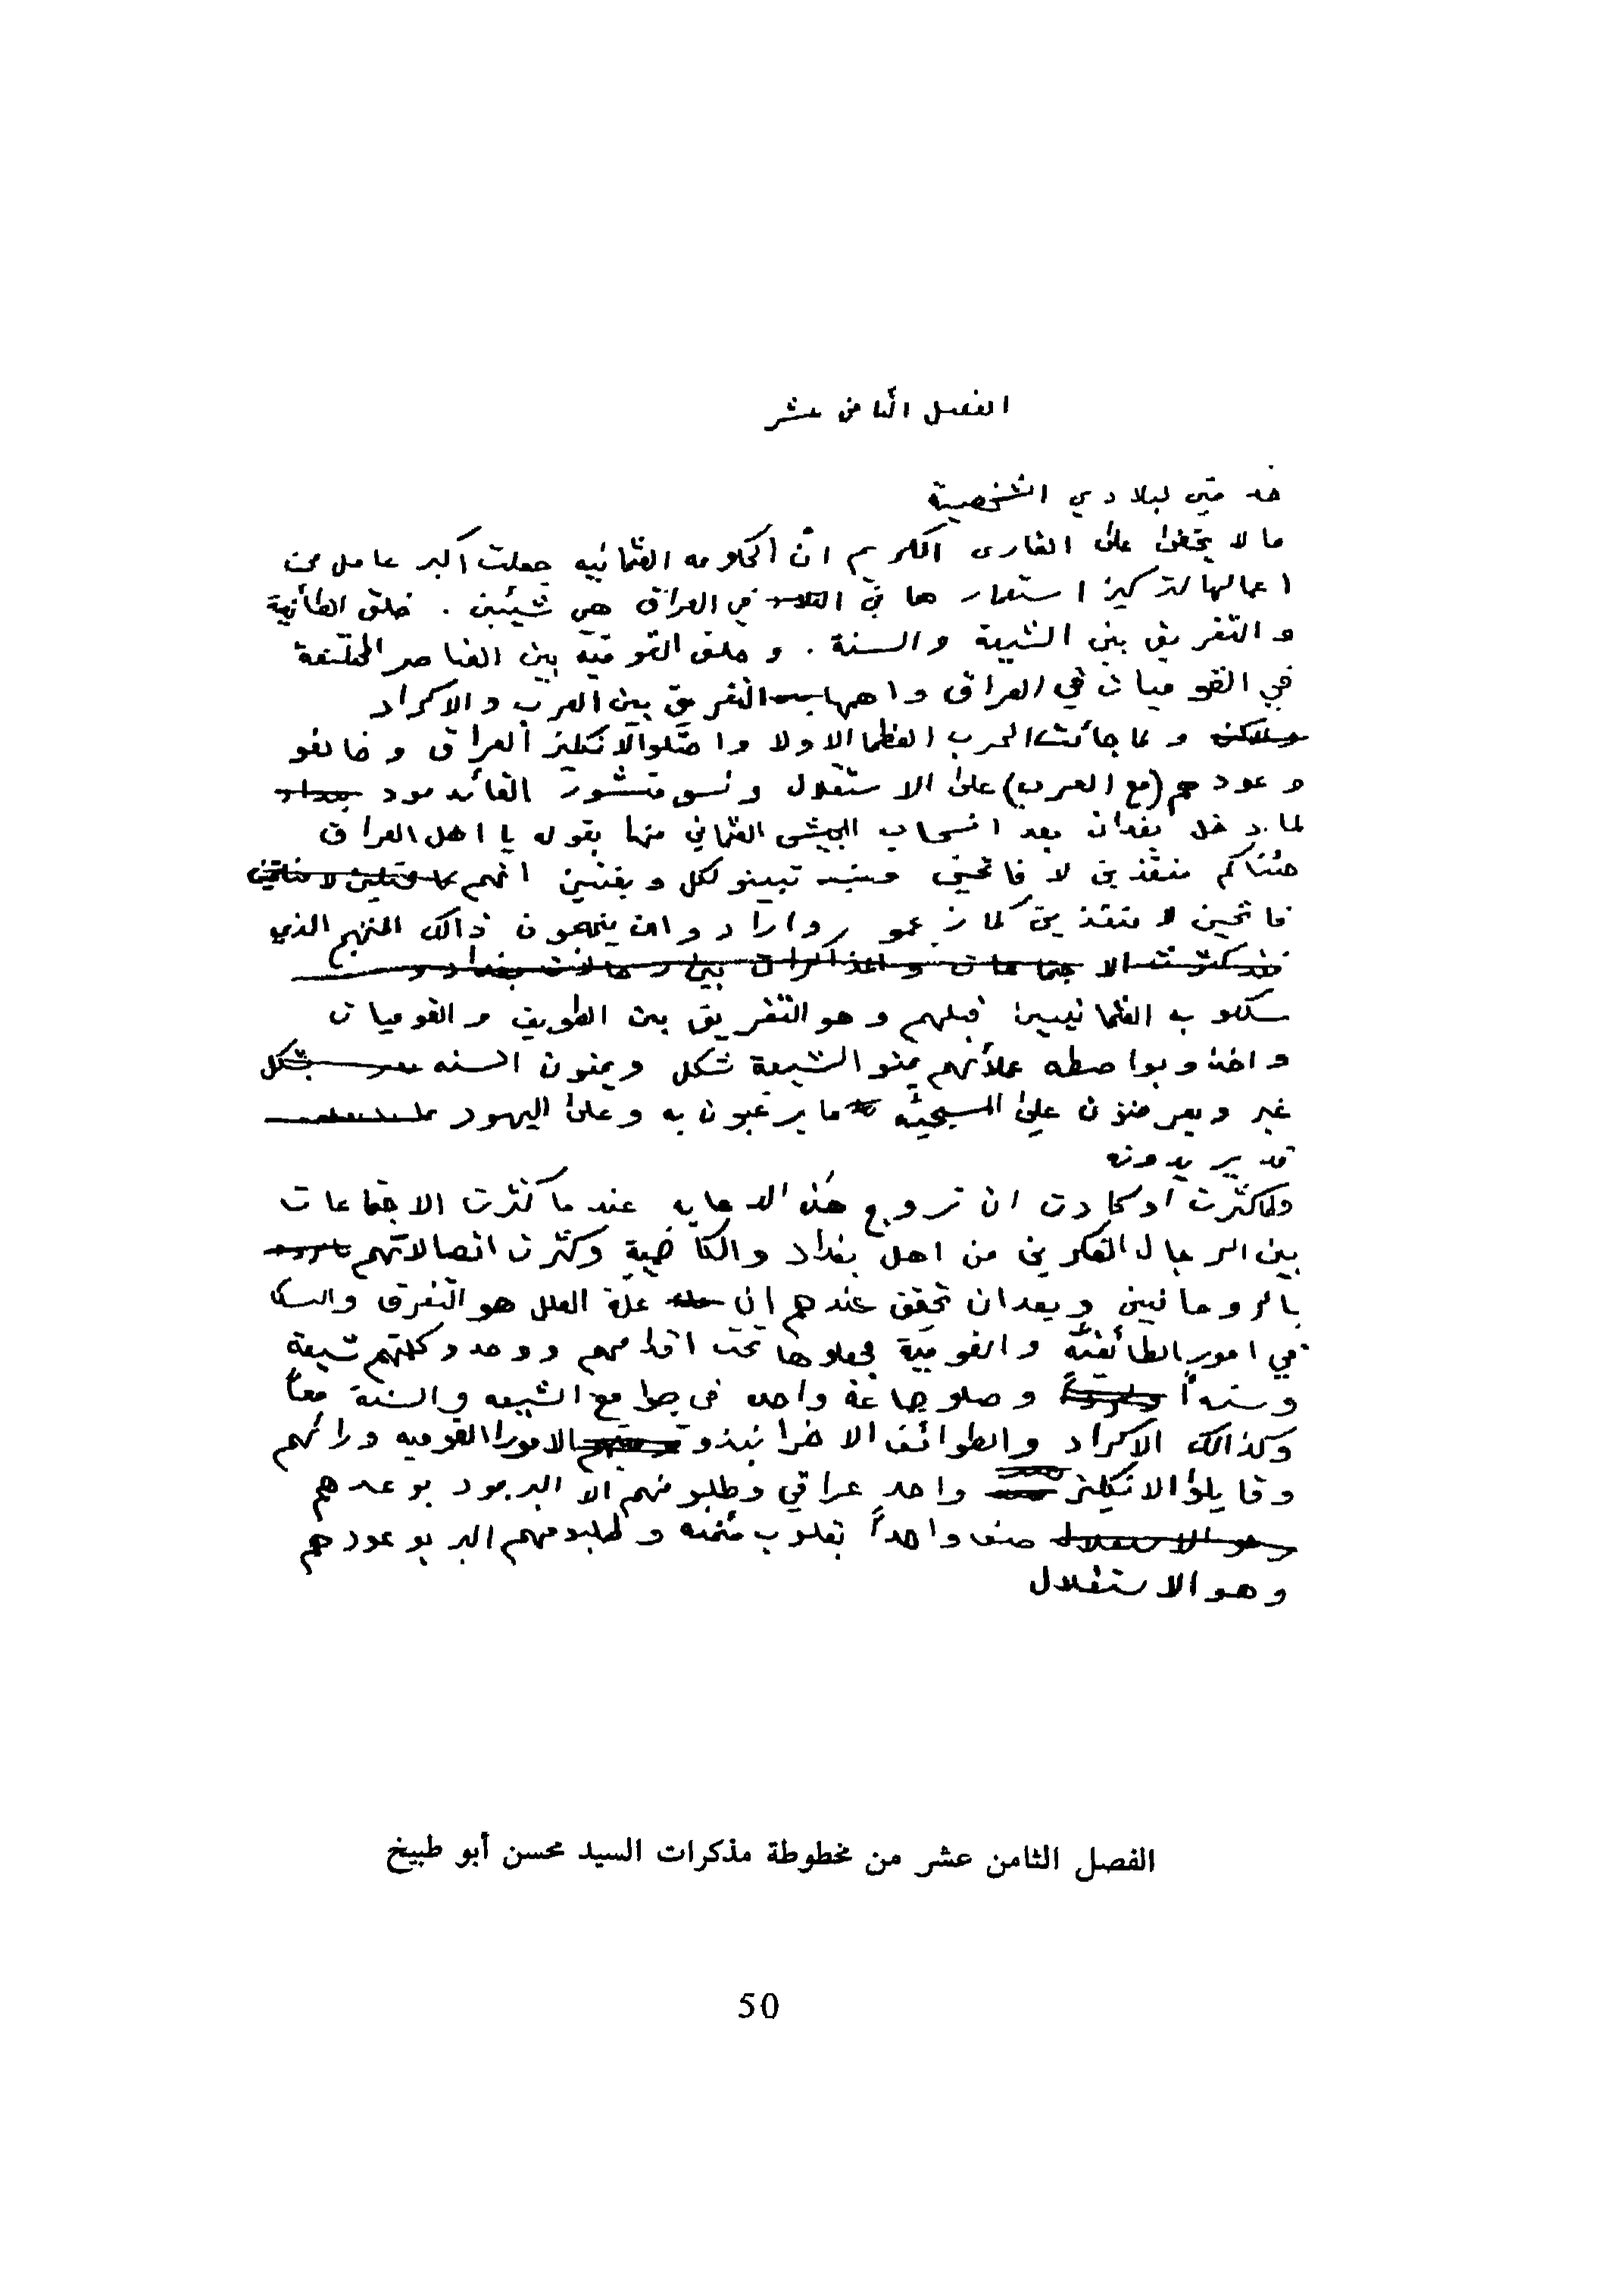 الفصل الثامن عشر
خدمتي لبلادي الشخصية
ما لا يخفىٰ علىٰ القارى الكريم انّ الحكومه العثمانيه جعلت أكبر عامل من
اعمالها لتركيز استعمارها في في العراق هي شيئين . خلق الطائفية
و التفريق بين الشيعة والسنة . و خلق القوميّة بين العناصر المختلفة
في القوميات في العراق واهمها التفريق بين العرب والاكراد
ولاكن و لما جائت الحرب العظما الاولا واحتلو الانكليز العراق وخالفو
وعودهم (مع العرب) علىٰ الاستقلال ونسو منشور القائد مود
لما دخل بغداد بعد انسحاب الجيش العثماني منها بقوله يا اهل العراق
جئناكم منقذين لا فاتحين تبينو لكل ويقنين انهم
فاتحين لا منقذين كما زعمو وارادو ان ينهجون ذالك المنهج الذي
الاجتماعات والمذاكرات بين رجالات بغداد
سلكو به العثمانيين قبلهم وهو التفريق بين الطويف والقوميات
واخذو بواصطه عملائهم يمنو الشيعة شكل ويمنون السنه بشكل
غير ويعرضون علىٰ المسيحيّه ما يرغبون به وعلىٰ اليهود
قد يريدونه
ولما كثرت او كادت ان تروج هٰذه الدعايه عندما كثرت الاجتماعات
بين الرجال المفكرين من اهل بغداد والكاضمية وكثرت اتصالاتهم
بالروحانيين وبعد ان تحقق عندهم ان علة العلل هو التفرق
في امور الطائفيّة والقوميّة فجعلوها تحت اقدامهم ووحدو كلمتهم شيعة
وسنهً وصلو جماعة واحده في جوامع الشيعه والسنة معاً
وكذالك الاكراد والطوائف الاخرا نبذو الامور القوميه ورائهم
وقابلوا الانكليز واحد عراقي وطلبو منهم الا البر بوعدهم
وهو الاستقلال صف واحداً بقلوب وطلبو منهم البر بوعودهم
وهو الاستقلال
الفصل الثامن عشر من مخطوطة مذكرات السيد محسن أبو طبيخ
50